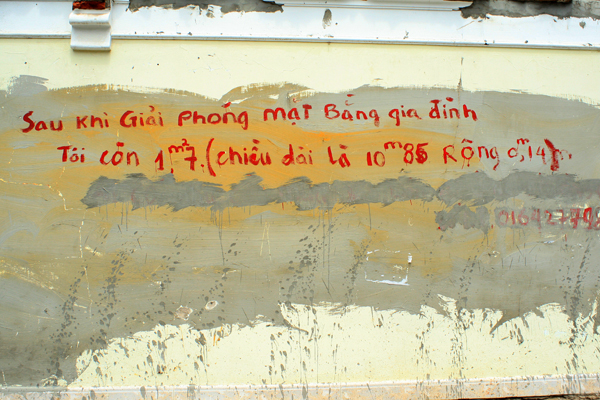 Sau khi Giải phóng mặt Bằng gia đình
Tôi còn 1,m²7.(chiều dài là 10m85 Rộng 0,m14)m